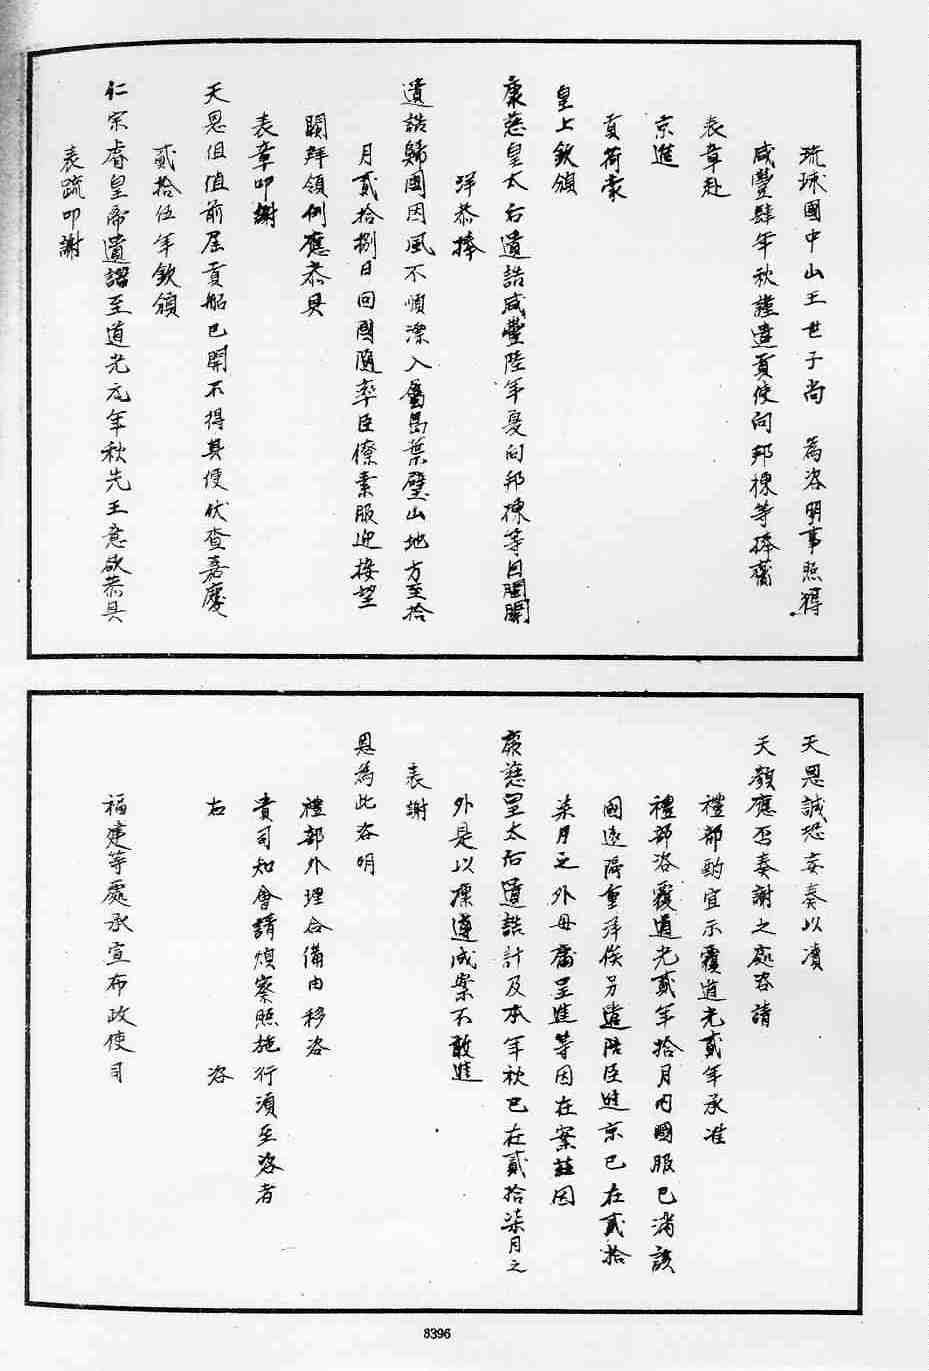 琉球國中山王世子尚　為咨明事照得
咸豐肆年秋謹遣貢使向邦棟等捧齎
表章赴
京進
貢荷蒙
皇上欽頒
康慈皇太后遺誥咸豐陸年夏向邦棟等自閩關
洋恭捧
遺誥歸國因風不順漂入舊島葉壁山地方至拾
月貳拾捌日回國隨率臣僚素服迎接望
闕拜領例應恭具
表章叩謝
天恩但值前屆貢船已開不得其便伏查嘉慶
貳拾伍年欽頒
仁宗睿皇帝遺詔至道光元年秋先王意欲恭具
表疏叩謝
天恩誠恐妄奏以瀆
天顏應否奏謝之處咨請
禮部酌宜示覆道光貳年承准
禮部咨覆道光貳年拾月內國服已滿該
國遠隔重洋俟另遣陪臣進京已在貳拾
柒月之外毋庸呈進等因在案茲因
康慈皇太后遺誥計及本年秋已在貳拾柒月之
外是以凜遵成案不敢進
表謝
恩為此咨明
禮部外理合備由移咨
貴司知會請煩察照施行須至咨者
右　　　　　咨
福建等處承宣布政使司
8396